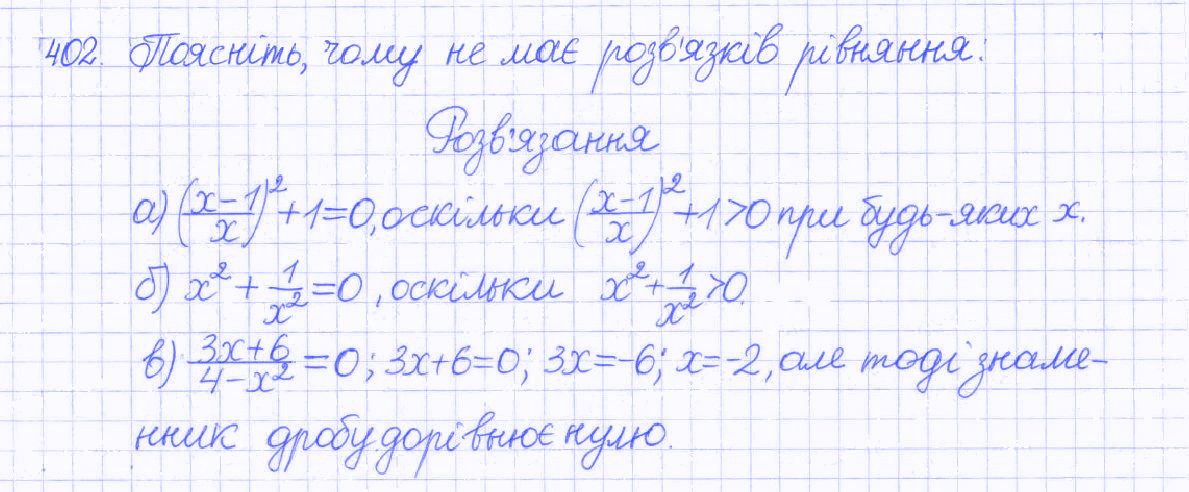 402. Поясніть, чому не має розв'язків рівняння:
Розв'язання
а) (x-1/x)²+1=0, оскільки (x-1/x)²+1>0 при будь-яких x.
б) x² + 1/x² = 0, оскільки x² + 1/x² > 0.
в) 3x+6/4-x² = 0; 3x+6=0; 3x=-6; x=-2, але тоді знаме-
нник дробу дорівнює нулю.